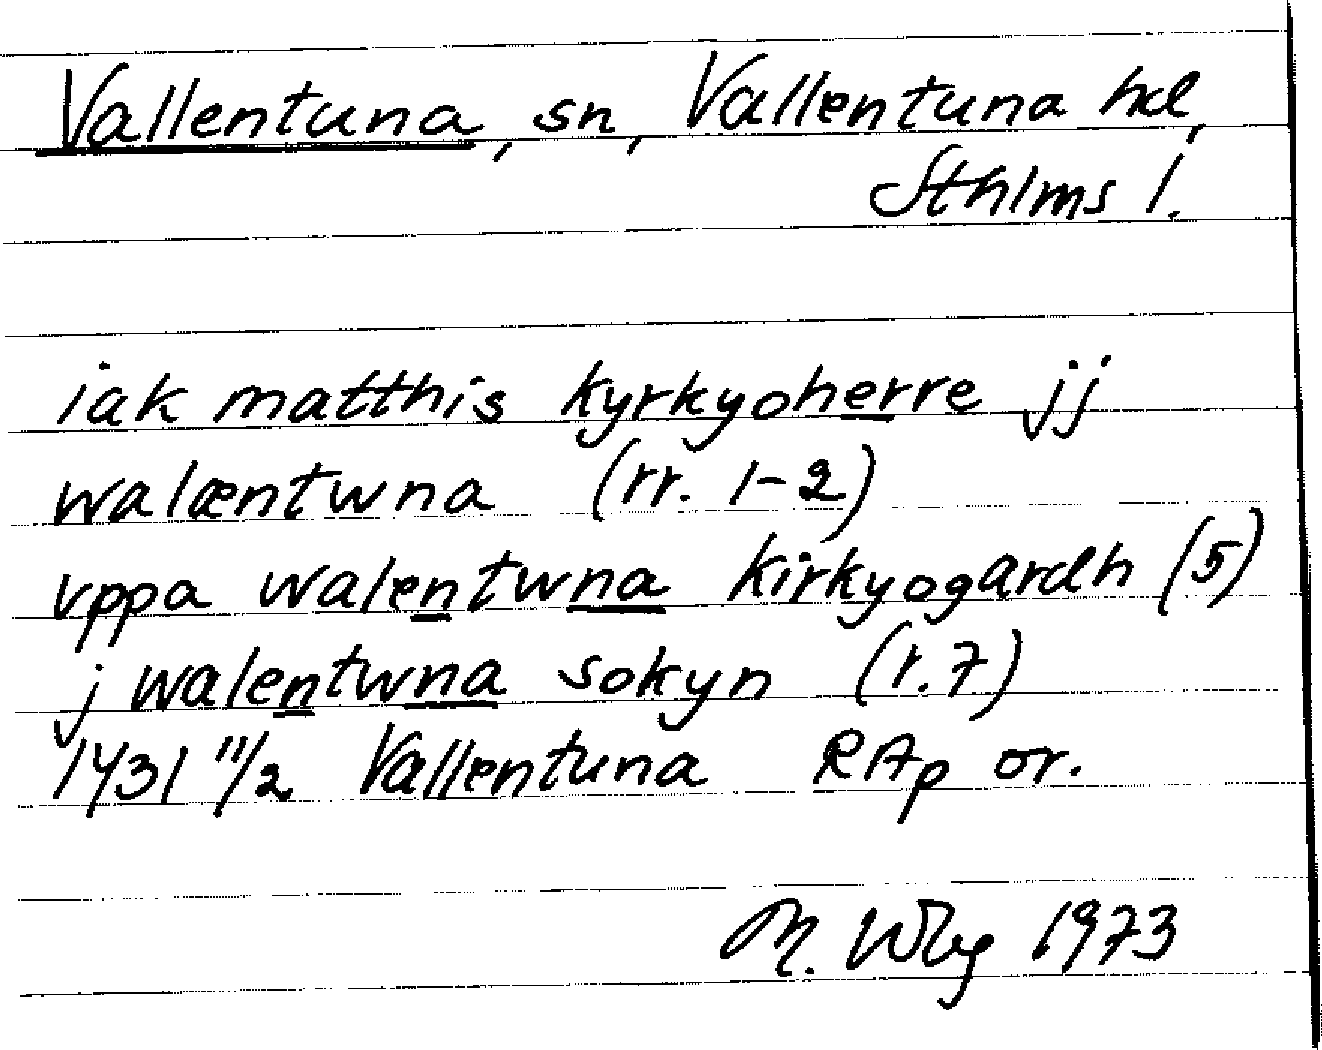 Vallentuna, sn, Vallentuna hd,
Sthlms l.
iak matthis kyrkyoherre jj
walæntwna (rr. 1-2)
vppa walentwna kirkyogardh (5)
j walentwna sokyn (r.7)
1431 11/2 Vallentuna RAp or.
M. Wbg 1973